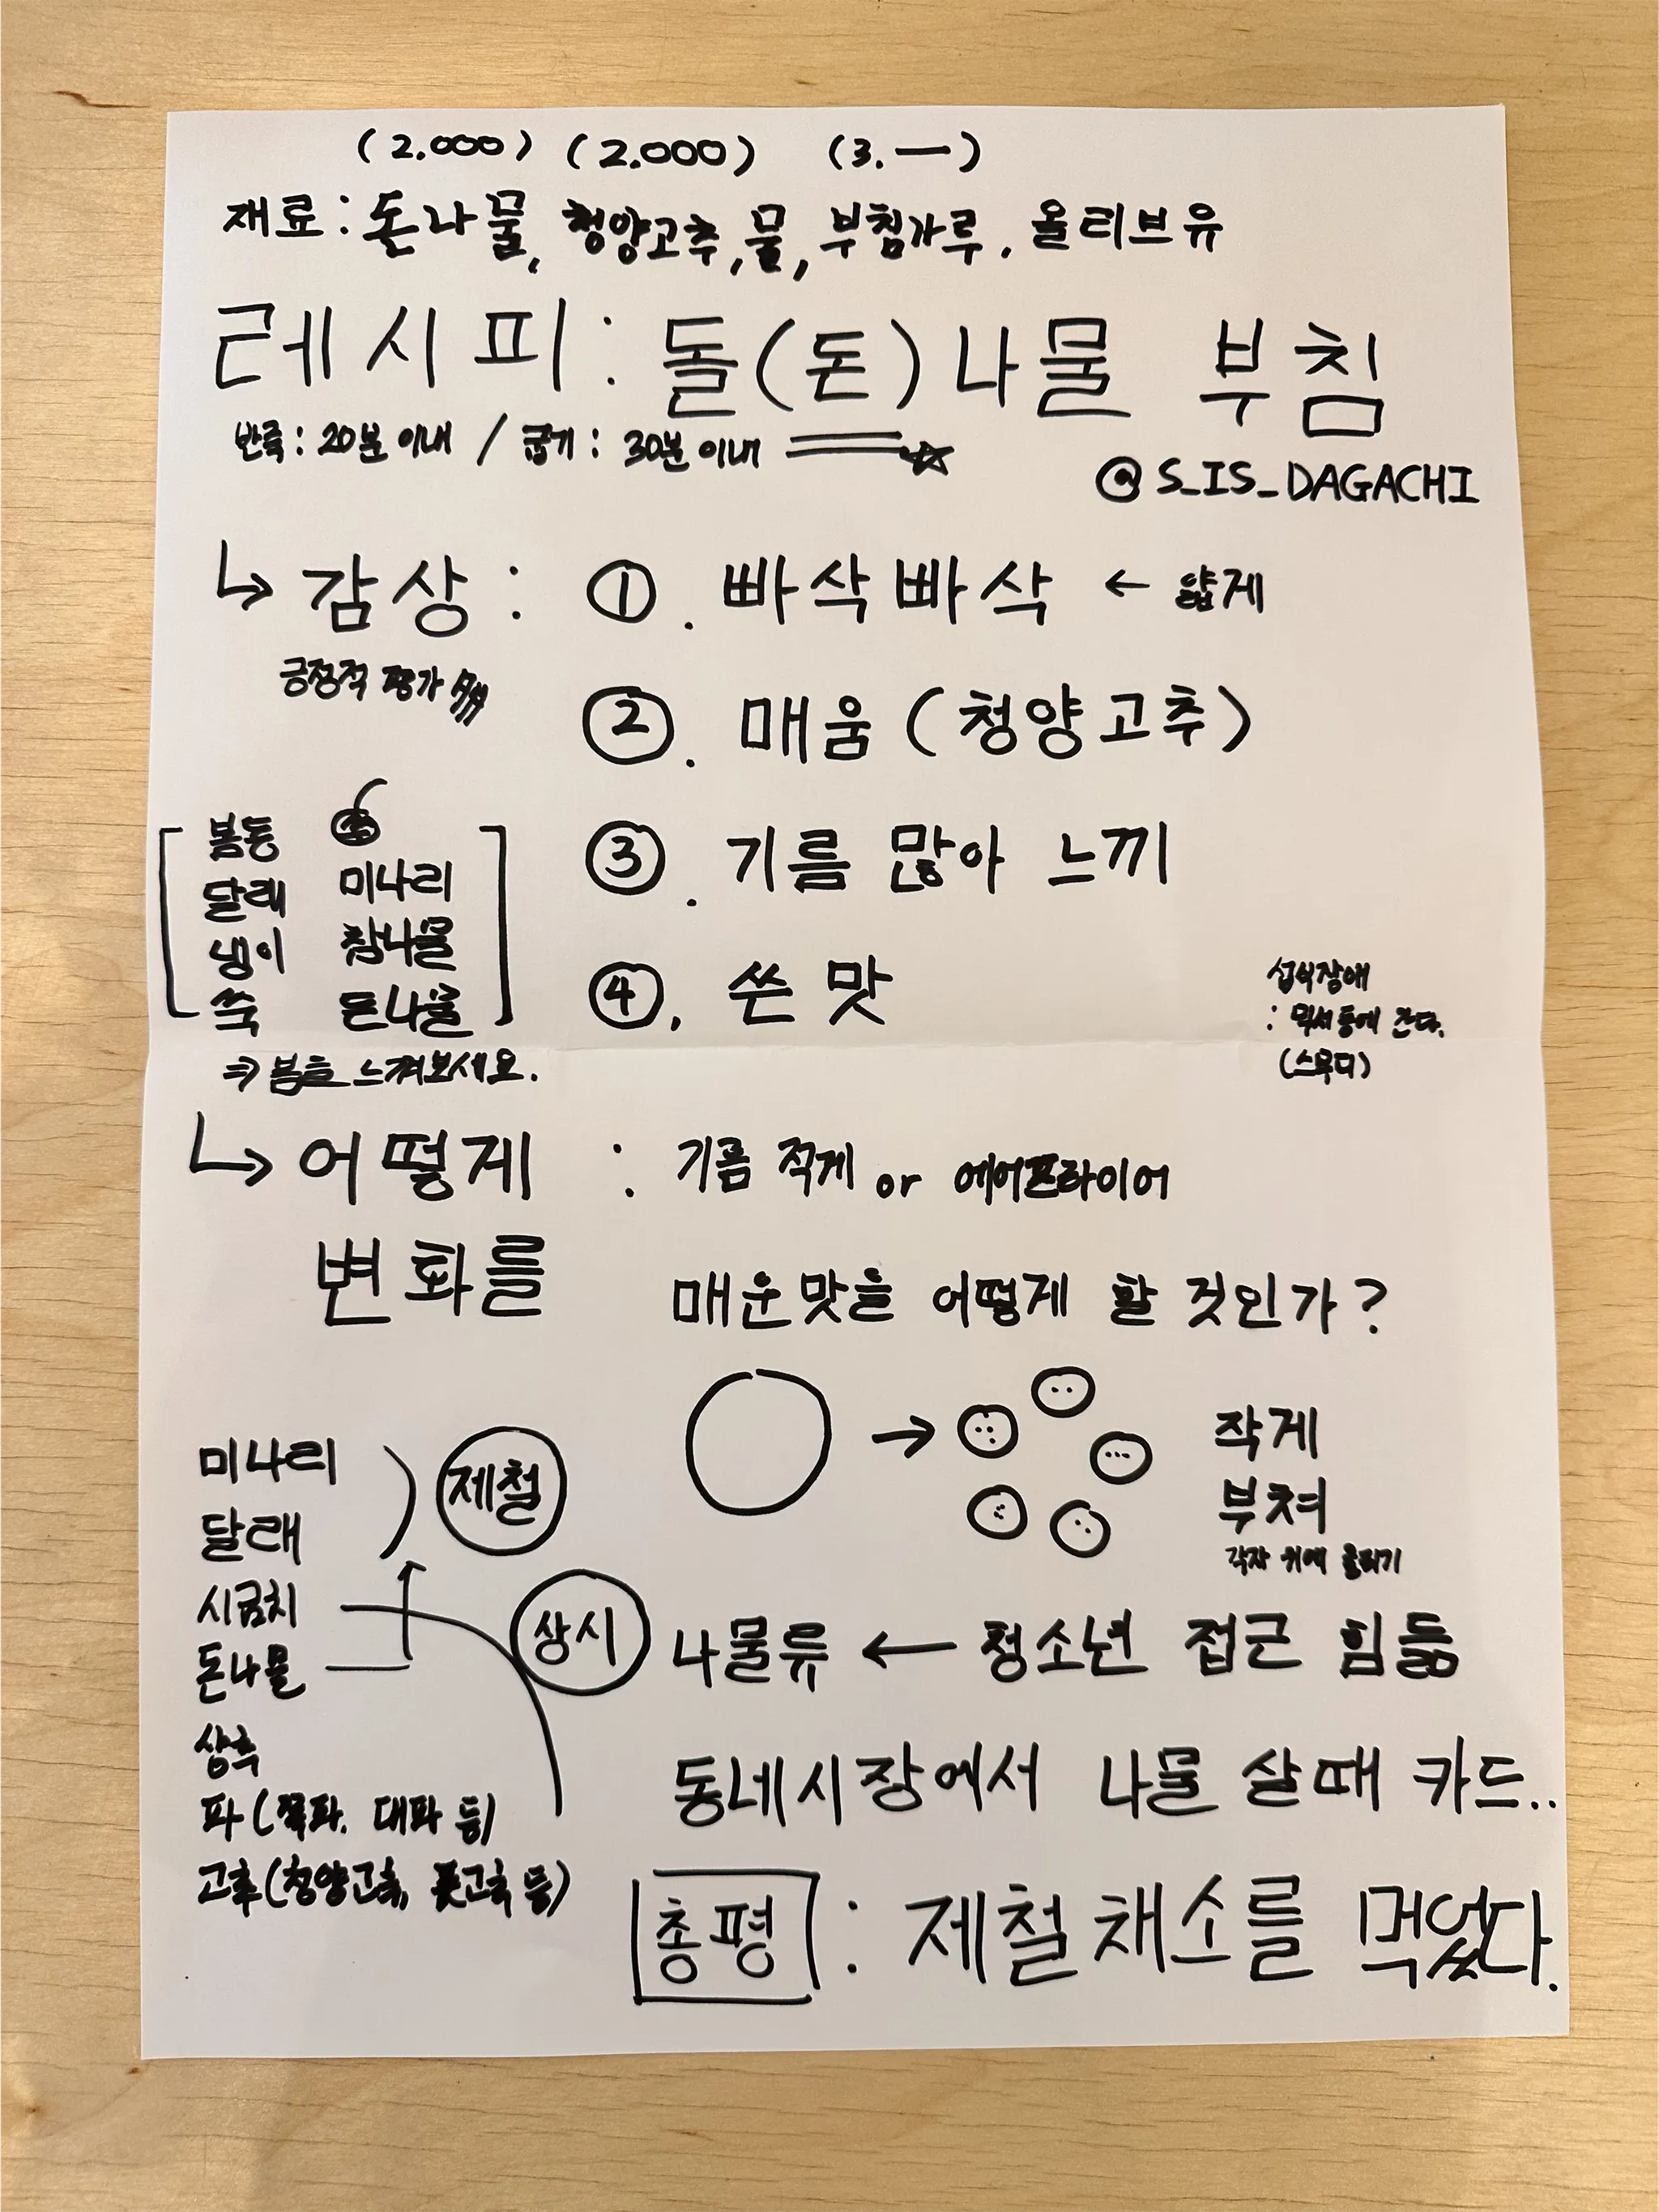 (2.000) (2.000) (3.一)
재료: 돈나물, 청양고추, 물, 부침가루, 올리브유
레시피: 돌(돈)나물 부침
반죽: 20분 이내 / 굽기: 30분 이내
@S_IS_DAGACHI
↳ 감상: ①. 빠삭빠삭 ← 얇게
긍정적 평가 多
②. 매움 (청양고추)
③. 기름 많아 느끼
④. 쓴 맛
봄동
달래 미나리
냉이 참나물
쑥 돈나물
⇒ 봄을 느껴보세요.
섭식장애
: 믹서등에 간다.
(스무디)
↳ 어떻게 변화를
: 기름 적게 or 에어프라이어
매운맛을 어떻게 할 것인가?
→ 작게
부쳐
각자 위에 올리기
미나리
달래
제철
시금치
돈나물
상시
상추
파(쪽파, 대파 등)
고추(청양고추, 풋고추 등)
나물류 ← 청소년 접근 힘듦
동네시장에서 나물 살때 카드..
총평 : 제철채소를 먹었다.